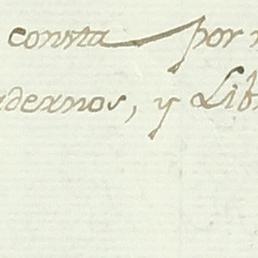 consta por
adernos, y Lib